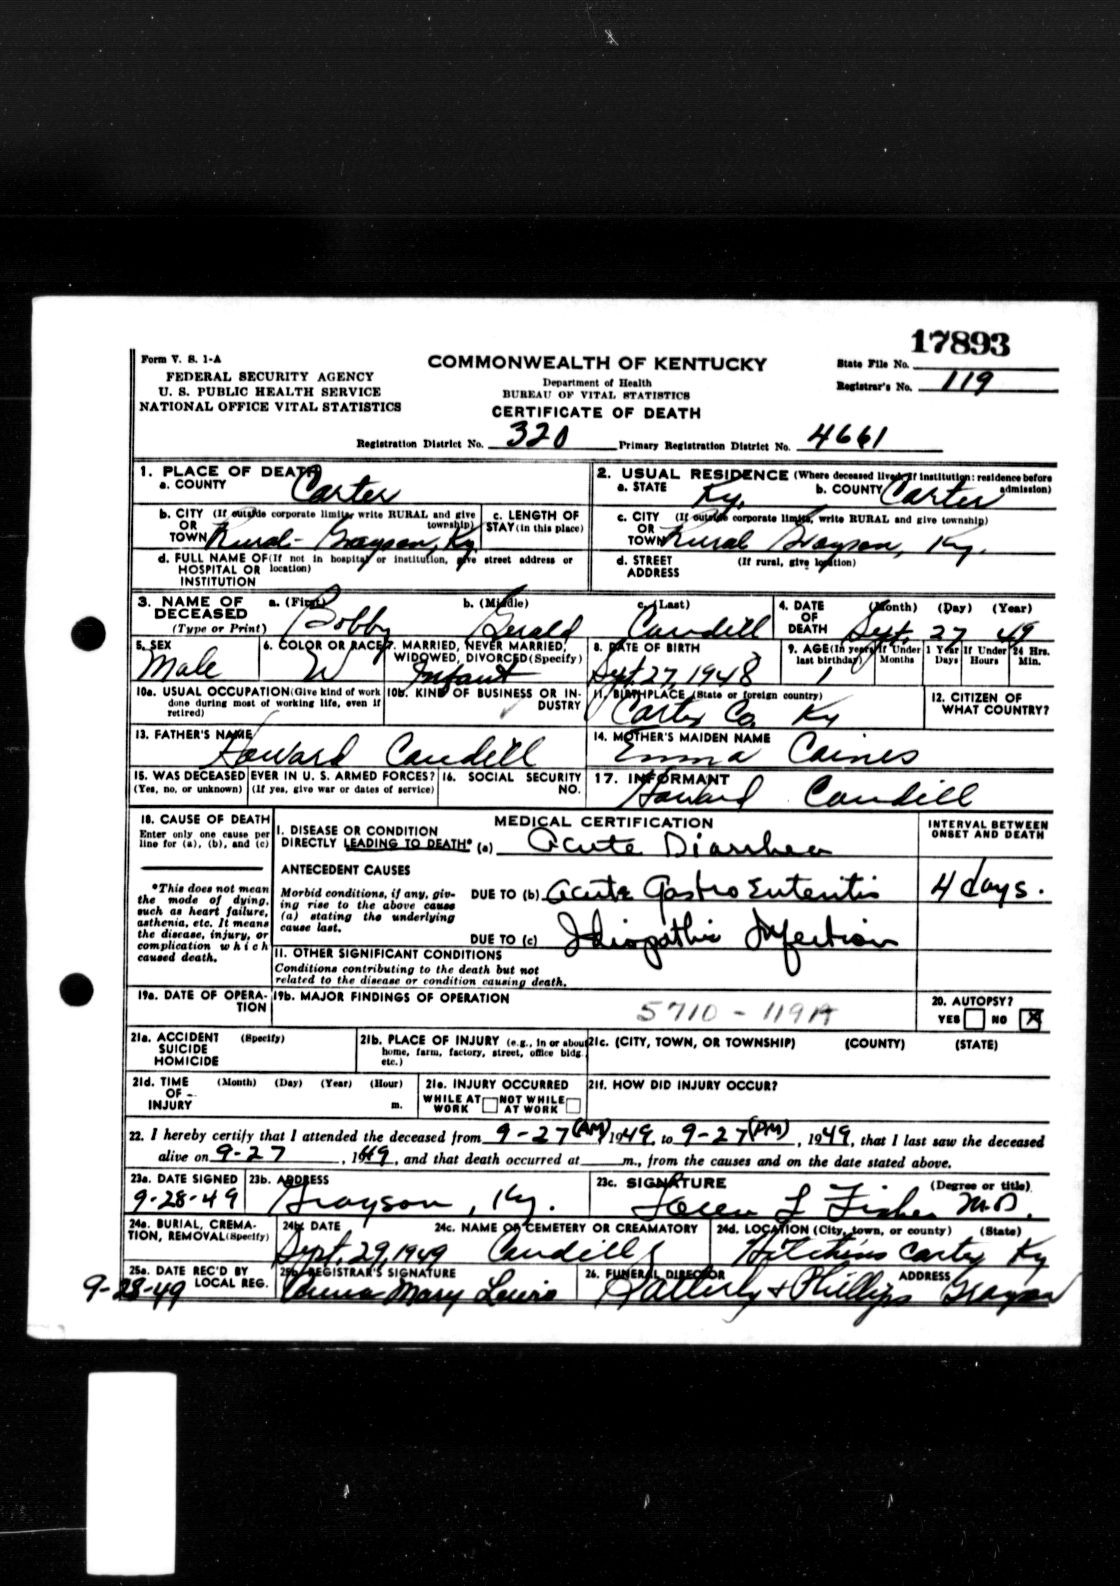 17893
Form V. S. 1-A
FEDERAL SECURITY AGENCY
U. S. PUBLIC HEALTH SERVICE
NATIONAL OFFICE VITAL STATISTICS
COMMONWEALTH OF KENTUCKY
Department of Health
BUREAU OF VITAL STATISTICS
CERTIFICATE OF DEATH
State File No.
Registrar's No. 119
Registration District No. 320 Primary Registration District No. 4661
1. PLACE OF DEATH
a. COUNTY Carter
2. USUAL RESIDENCE (Where deceased lived. If institution: residence before admission)
a. STATE Ky. b. COUNTY Carter
b. CITY (If outside corporate limits, write RURAL and give township)
OR
TOWN Rural - Grayson, Ky.
c. LENGTH OF
STAY (in this place)
c. CITY (If outside corporate limits, write RURAL and give township)
OR
TOWN Rural Grayson, Ky.
d. FULL NAME OF (If not in hospital or institution, give street address or
HOSPITAL OR location)
INSTITUTION
d. STREET (If rural, give location)
ADDRESS
3. NAME OF
DECEASED
(Type or Print)
a. (First) Bobby b. (Middle) Gerald c. (Last) Caudill
4. DATE
OF
DEATH
(Month) (Day) (Year)
Sept. 27 49
5. SEX
Male
6. COLOR OR RACE
W
7. MARRIED, NEVER MARRIED,
WIDOWED, DIVORCED (Specify)
Infant
8. DATE OF BIRTH
Sept. 27, 1948
9. AGE (In years
last birthday)
1
If Under 1 Year
Months Days
If Under 24 Hrs.
Hours Min.
10a. USUAL OCCUPATION (Give kind of work
done during most of working life, even if
retired)
10b. KIND OF BUSINESS OR IN-
DUSTRY
11. BIRTHPLACE (State or foreign country)
Carter Co. Ky
12. CITIZEN OF
WHAT COUNTRY?
13. FATHER'S NAME
Howard Caudill
14. MOTHER'S MAIDEN NAME
Emma Caines
15. WAS DECEASED EVER IN U. S. ARMED FORCES?
(Yes, no, or unknown) (If yes, give war or dates of service)
16. SOCIAL SECURITY
NO.
17. INFORMANT
Howard Caudill
18. CAUSE OF DEATH
Enter only one cause per
line for (a), (b), and (c)
*This does not mean
the mode of dying,
such as heart failure,
asthenia, etc. It means
the disease, injury, or
complication which
caused death.
MEDICAL CERTIFICATION
INTERVAL BETWEEN
ONSET AND DEATH
I. DISEASE OR CONDITION
DIRECTLY LEADING TO DEATH* (a) Acute Diarrhea
ANTECEDENT CAUSES
Morbid conditions, if any, giv-
ing rise to the above cause
(a) stating the underlying
cause last.
DUE TO (b) Acute Gastro Enteritis 4 days.
DUE TO (c) Idiopathic Infection
II. OTHER SIGNIFICANT CONDITIONS
Conditions contributing to the death but not
related to the disease or condition causing death.
19a. DATE OF OPERA-
TION
19b. MAJOR FINDINGS OF OPERATION
5710 - 119A
20. AUTOPSY?
YES NO X
21a. ACCIDENT (Specify)
SUICIDE
HOMICIDE
21b. PLACE OF INJURY (e.g., in or about
home, farm, factory, street, office bldg.
etc.)
21c. (CITY, TOWN, OR TOWNSHIP) (COUNTY) (STATE)
21d. TIME (Month) (Day) (Year) (Hour)
OF
INJURY m.
21e. INJURY OCCURRED
WHILE AT NOT WHILE
WORK AT WORK
21f. HOW DID INJURY OCCUR?
22. I hereby certify that I attended the deceased from 9-27 (AM) 1949, to 9-27 (PM), 1949, that I last saw the deceased
alive on 9-27, 1949, and that death occurred at m., from the causes and on the date stated above.
23a. DATE SIGNED
9-28-49
23b. ADDRESS
Grayson, Ky.
23c. SIGNATURE (Degree or title)
L Fisher M.D.
24a. BURIAL, CREMA-
TION, REMOVAL (Specify)
24b. DATE
Sept. 29, 1949
24c. NAME OF CEMETERY OR CREAMATORY
Caudill
24d. LOCATION (City, town, or county) (State)
Hitchins Carter Ky
25a. DATE REC'D BY
LOCAL REG.
9-28-49
25b. REGISTRAR'S SIGNATURE
Mary Lewis
26. FUNERAL DIRECTOR ADDRESS
& Phillips Grayson